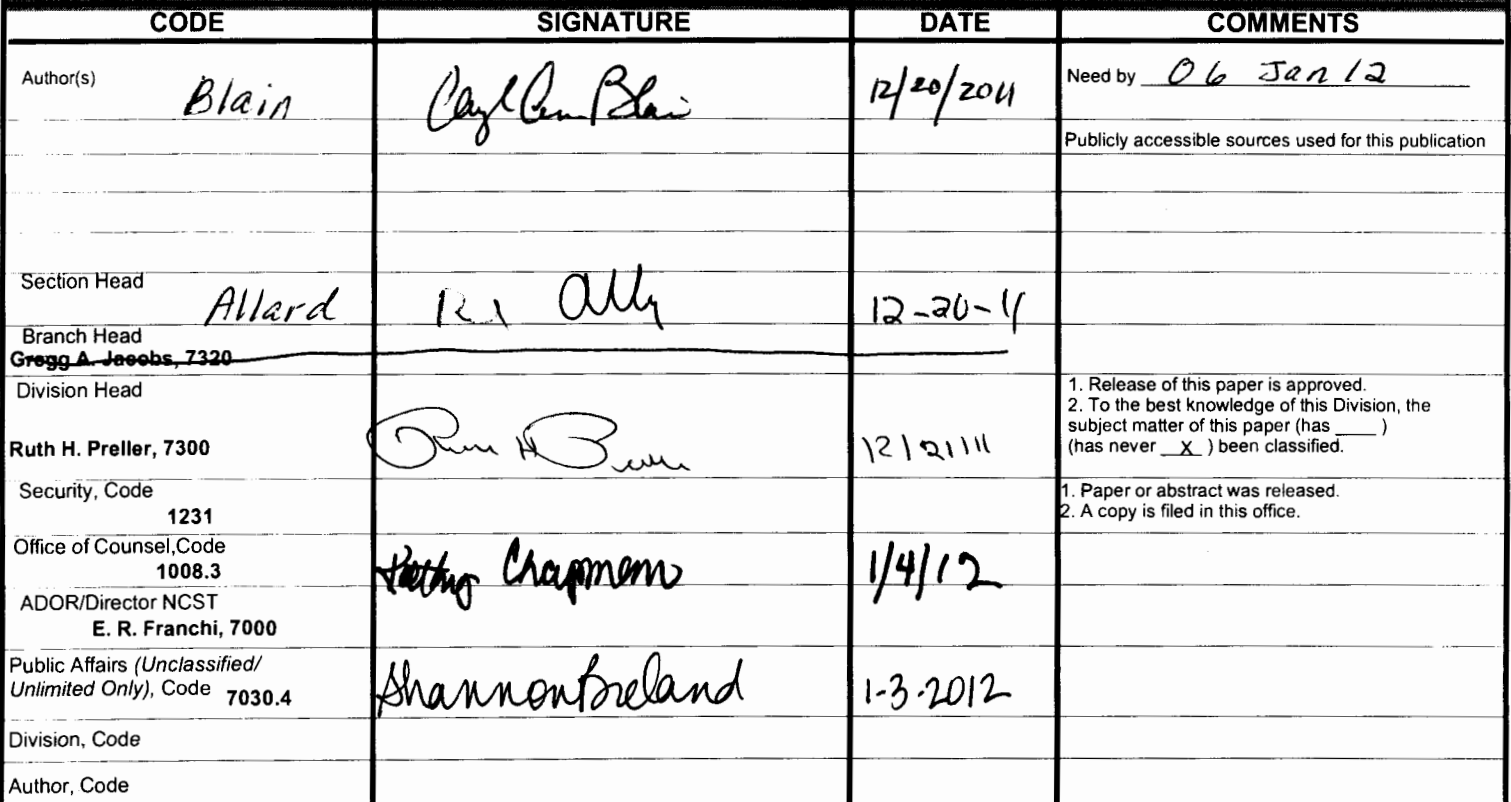 CODE SIGNATURE DATE COMMENTS
Author(s) Blain Blain 12/20/2011 Need by 06 Jan 12
Publicly accessible sources used for this publication
Section Head
Allard 12-20-11
Branch Head
Gregg A. Jacobs, 7320
Division Head
1. Release of this paper is approved.
2. To the best knowledge of this Division, the
subject matter of this paper (has ____ )
Ruth H. Preller, 7300 12/21/11 (has never X ) been classified.
Security, Code
1231
1. Paper or abstract was released.
2. A copy is filed in this office.
Office of Counsel,Code
1008.3 Chapman 1/4/12
ADOR/Director NCST
E. R. Franchi, 7000
Public Affairs (Unclassified/
Unlimited Only), Code 7030.4 Shannon Breland 1-3-2012
Division, Code
Author, Code